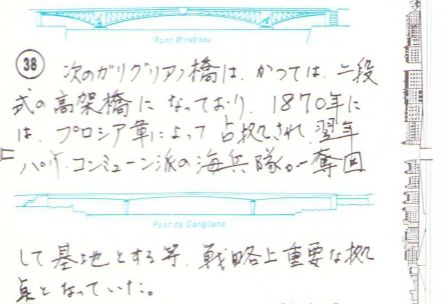 Pont Mirabeau
38 次のガリグリアノ橋は、かつては、二段
式の高架橋になっており、1870年に
は、プロシア軍によって占拠され、翌年
パリ・コンミューン派の海兵隊が奪回
Pont de Garigliano
して基地とする等、戦略上重要な拠
点となっていた。